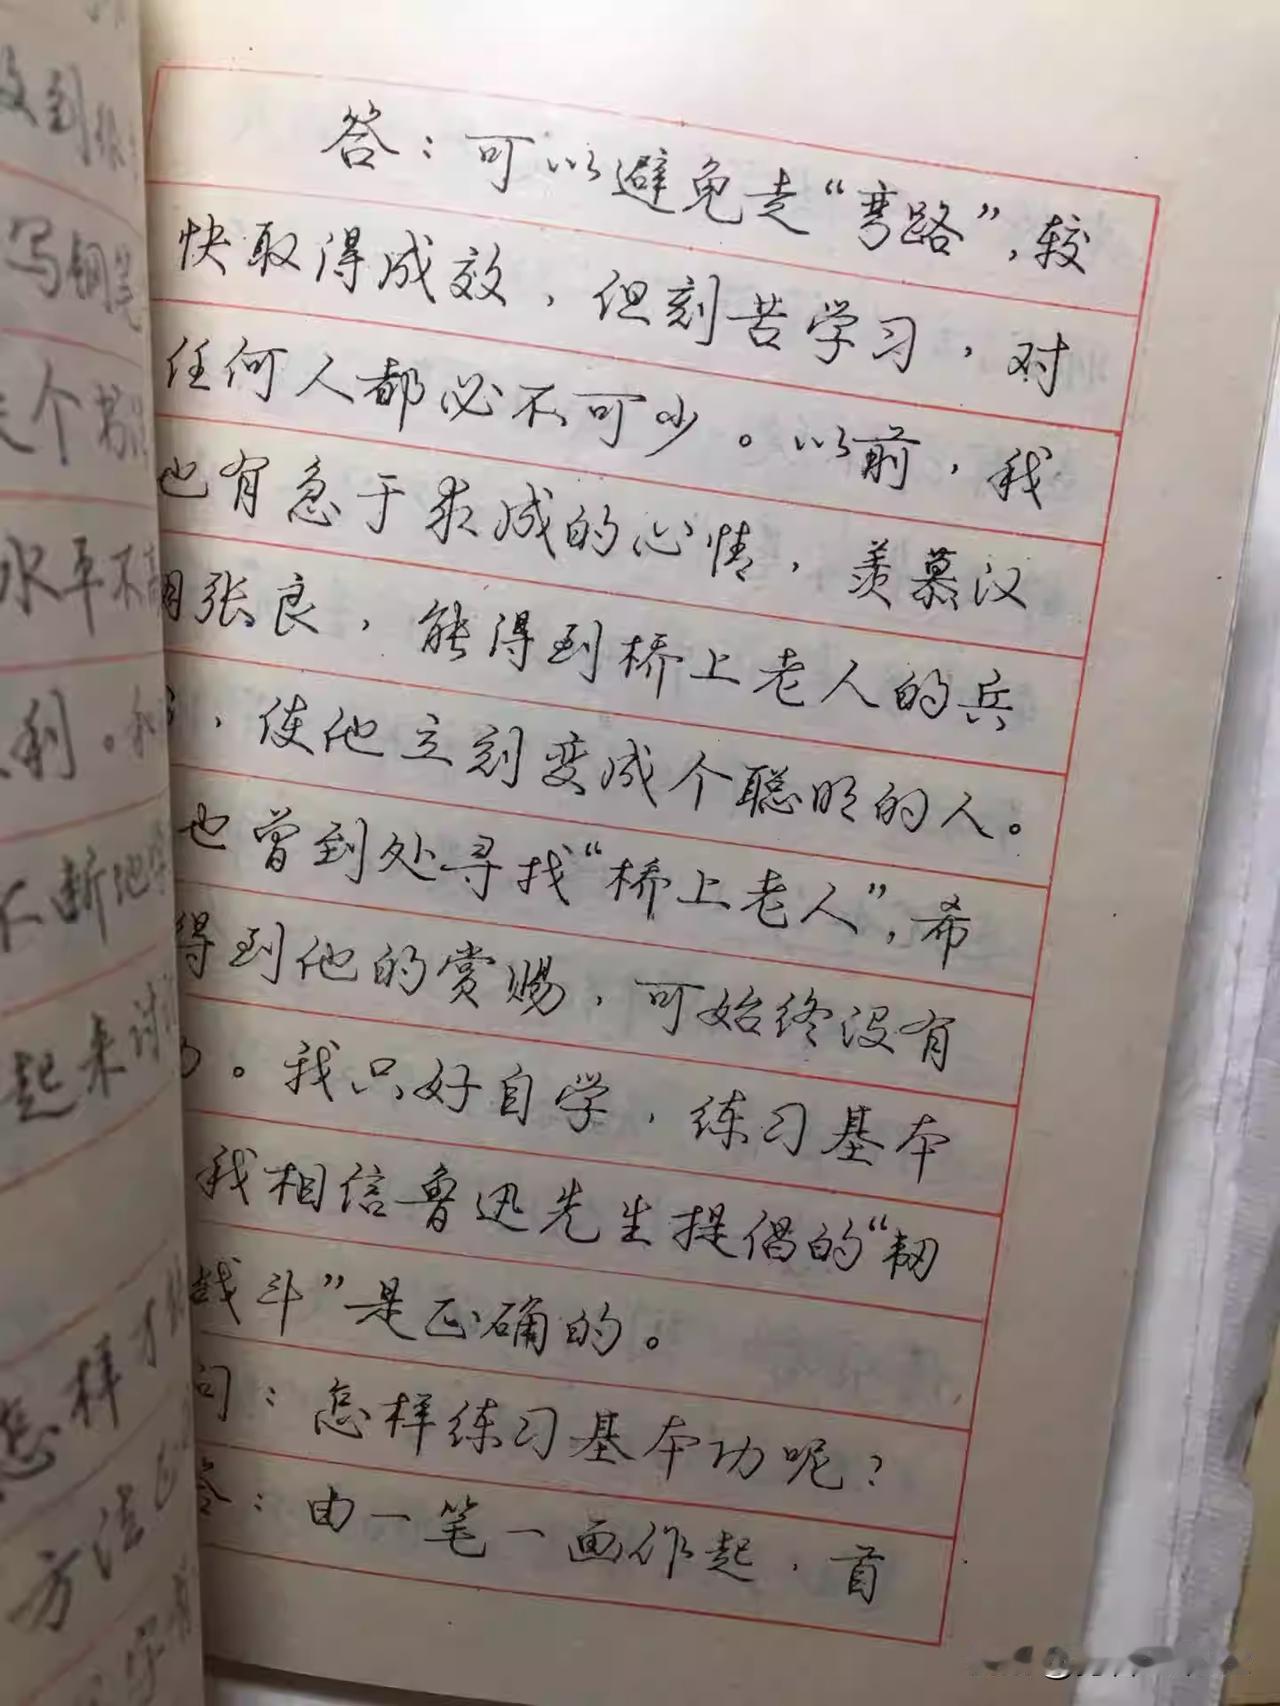 答：可以避免走“弯路”，较
快取得成效，但刻苦学习，对
任何人都必不可少。以前，我
也有急于求成的心情，羡慕汉
张良，能得到桥上老人的兵
，使他立刻变成个聪明的人。
也曾到处寻找“桥上老人”，希
得到他的赏赐，可始终没有
。我只好自学，练习基本
我相信鲁迅先生提倡的“韧
战斗”是正确的。
问：怎样练习基本功呢？
答：由一笔一画作起，首
到
写钢笔
个
水平不
利。
断地
起来讨
怎样才
方法
字